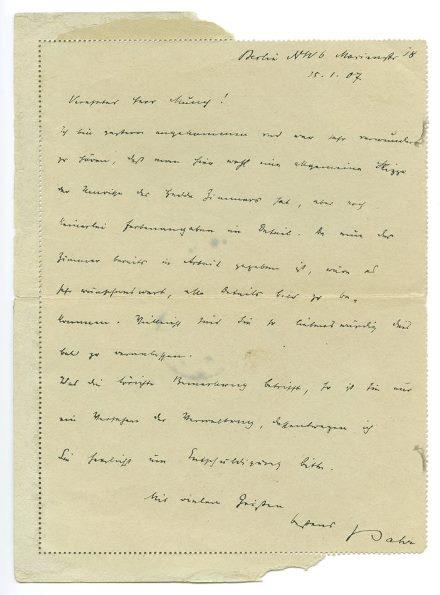 Berlin NW 6 Marienstr 18
15.1.07.
Verehrter Herr Munch!
ich bin gestern angekommen und war sehr verwundert
zu hören, daß man hier wohl eine allgemeine Skizze
der des Hedda Zimmers hat, aber noch
keinerlei Farbenangaben im Detail. Da nun das
Zimmer bereits in Arbeit gegeben ist, wäre es
sehr wünschenswert, alle Details bald zu be-
kommen. Vielleicht sind Sie so liebenswürdig das
bald zu veranlassen.
Was die törichte Bemerkung betrifft, so ist sie nur
ein Versehen der Verwaltung, dessentwegen ich
Sie herzlichst um Entschuldigung bitte.
Mit vielen Grüßen
bestens Bahr